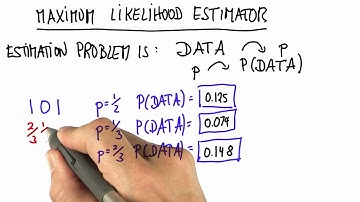 MAXIMUM LIKELIHOOD ESTIMATOR
ESTIMATION PROBLEM IS: DATA → P
P → P(DATA)
1 0 1 P=1/2 P(DATA)= 0.125
2/3 1 P=1/3 P(DATA)= 0.074
P=2/3 P(DATA)= 0.148